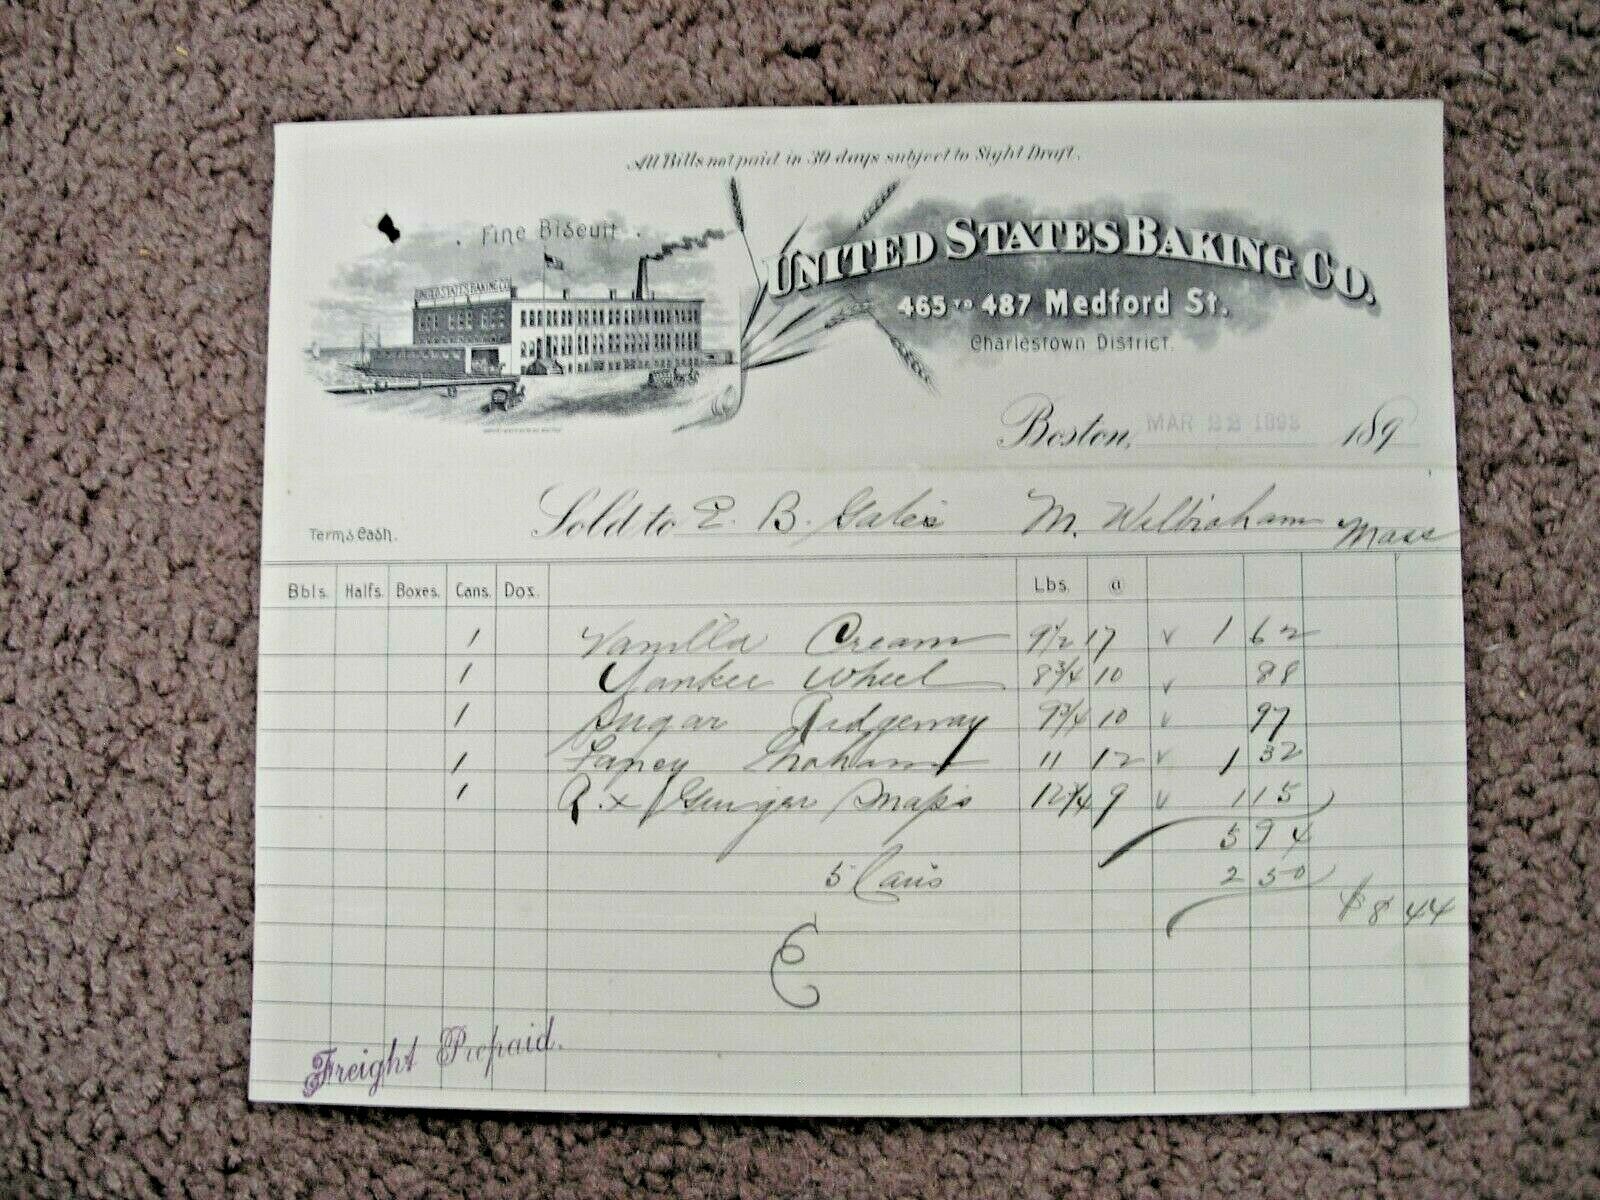 All Bills not paid in 30 days subject to Sight Draft.
Fine Biscuit
UNITED STATES BAKING CO.
UNITED STATES BAKING CO.
465 TO 487 Medford St.
Charlestown District.
Boston, MAR 22 189
Terms Cash. Sold to E. B. Gates M. Wilbraham Mass
Bbls. Halfs. Boxes. Cans. Doz. Lbs. @
1 Vanilla Cream 9 1/2 17 v 1 62
1 Yankee Wheel 8 3/4 10 v 88
1 Sugar Ridgeway 9 3/4 10 v 97
1 Fancy Graham 11 12 v 1 32
1 x Ginger Snaps 12 3/4 9 v 1 15
5 94
5 Cans 2 50
$8 44
Freight Prepaid.